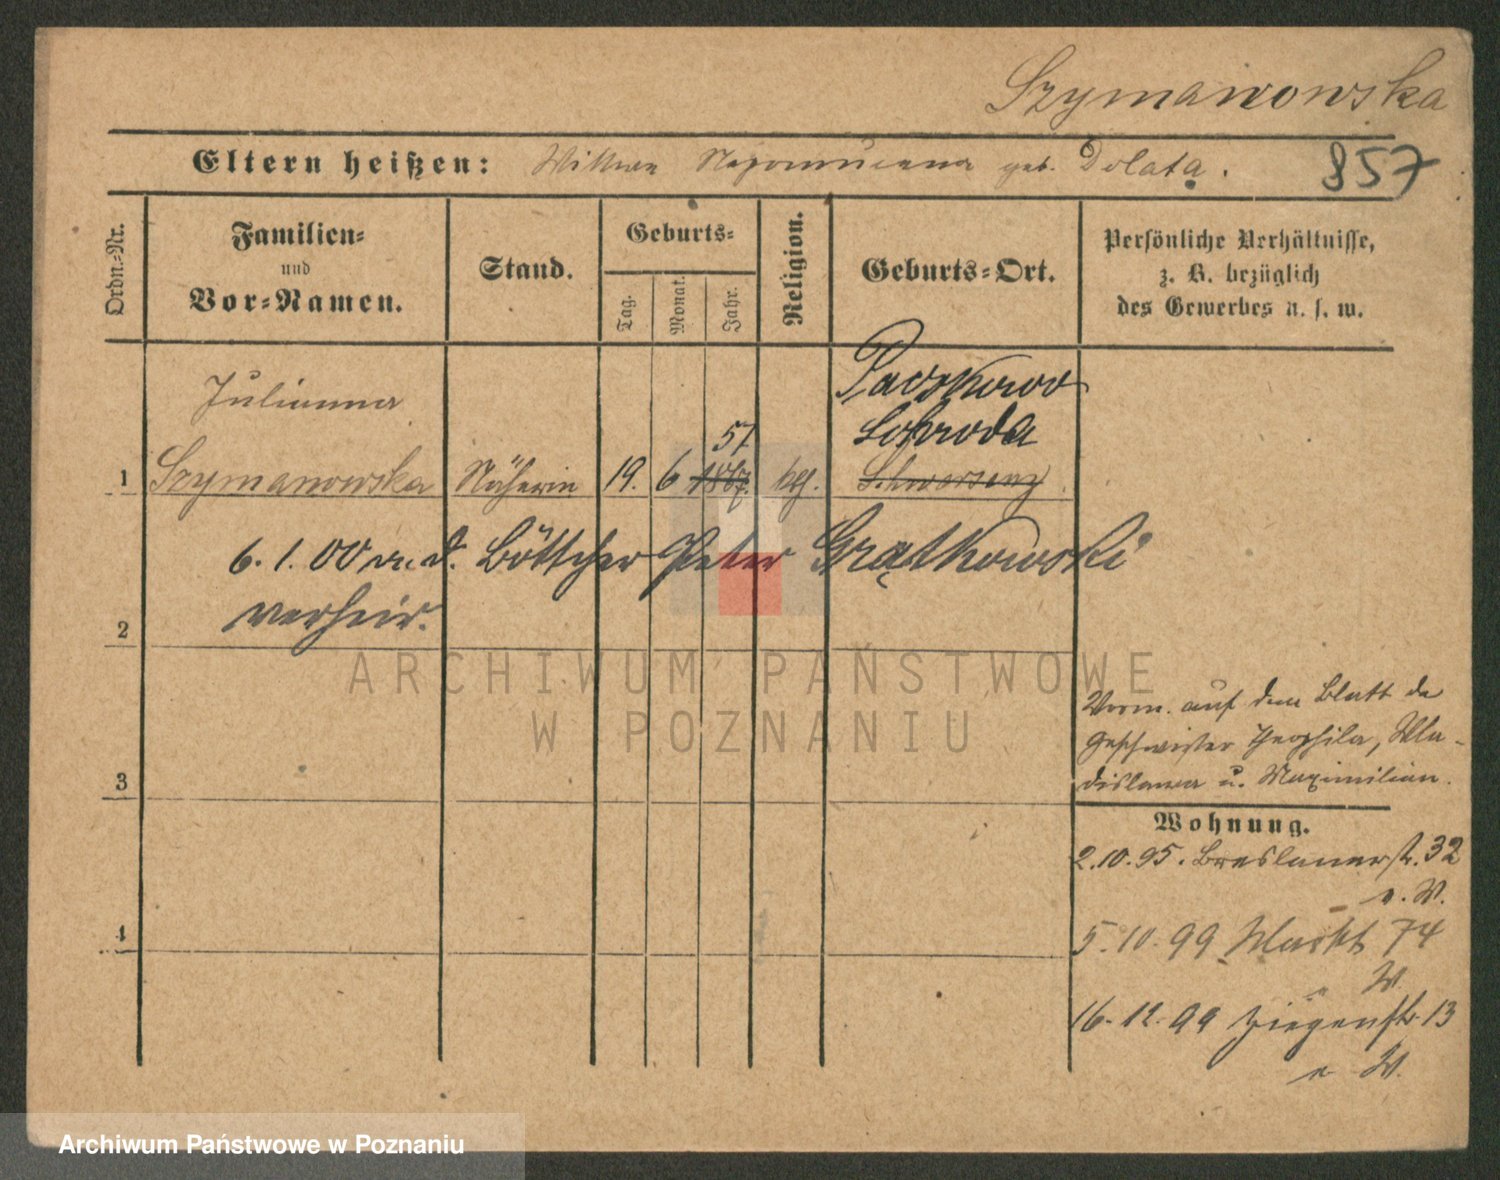 Szymanowska
Eltern heißen: Wittwe Nepomucena geb. Dolata. 857
Ordn.-Nr.
Familien-
und
Vor-Namen.
Stand.
Geburts-
Tag.
Monat.
Jahr.
Religion.
Geburts-Ort.
Persönliche Verhältnisse,
z. B. bezüglich
des Gewerbes u. s. w.
Julianna
Paczkowo
Schroda
57
1 Szymanowska Näherin 19. 6 1867. kth. Schwersenz
6. 1. 00 m. d. Böttcher Peter Grątkowski
2 verheir.
3
4
Vorm. auf dem Blatt de
Geschwister Theophila, Wla-
dislawa u. Maximilian.
Wohnung.
2.10.95. Breslauerstr. 32
v. W.
5.10.99 Markt 74
W.
16.12.99 Ziegenstr. 13
W.
ARCHIWUM PAŃSTWOWE
W POZNANIU
Archiwum Państwowe w Poznaniu